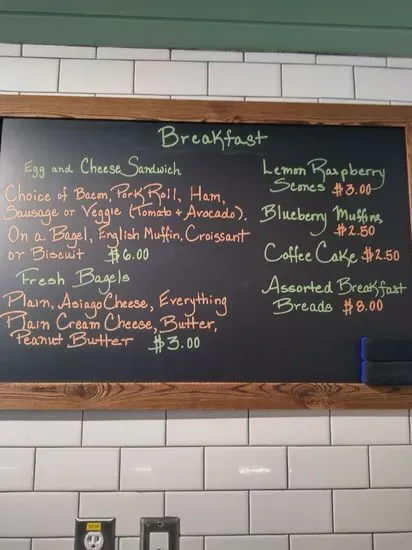 Breakfast
Egg and Cheese Sandwich
Choice of Bacon, Pork Roll, Ham,
Sausage or Veggie (Tomato + Avocado).
On a Bagel, English Muffin, Croissant
or Biscuit $6.00
Fresh Bagels
Plain, Asiago Cheese, Everything
Plain Cream Cheese, Butter,
Peanut Butter $3.00
Lemon Raspberry
Scones $3.00
Blueberry Muffins
$2.50
Coffee Cake $2.50
Assorted Breakfast
Breads $8.00